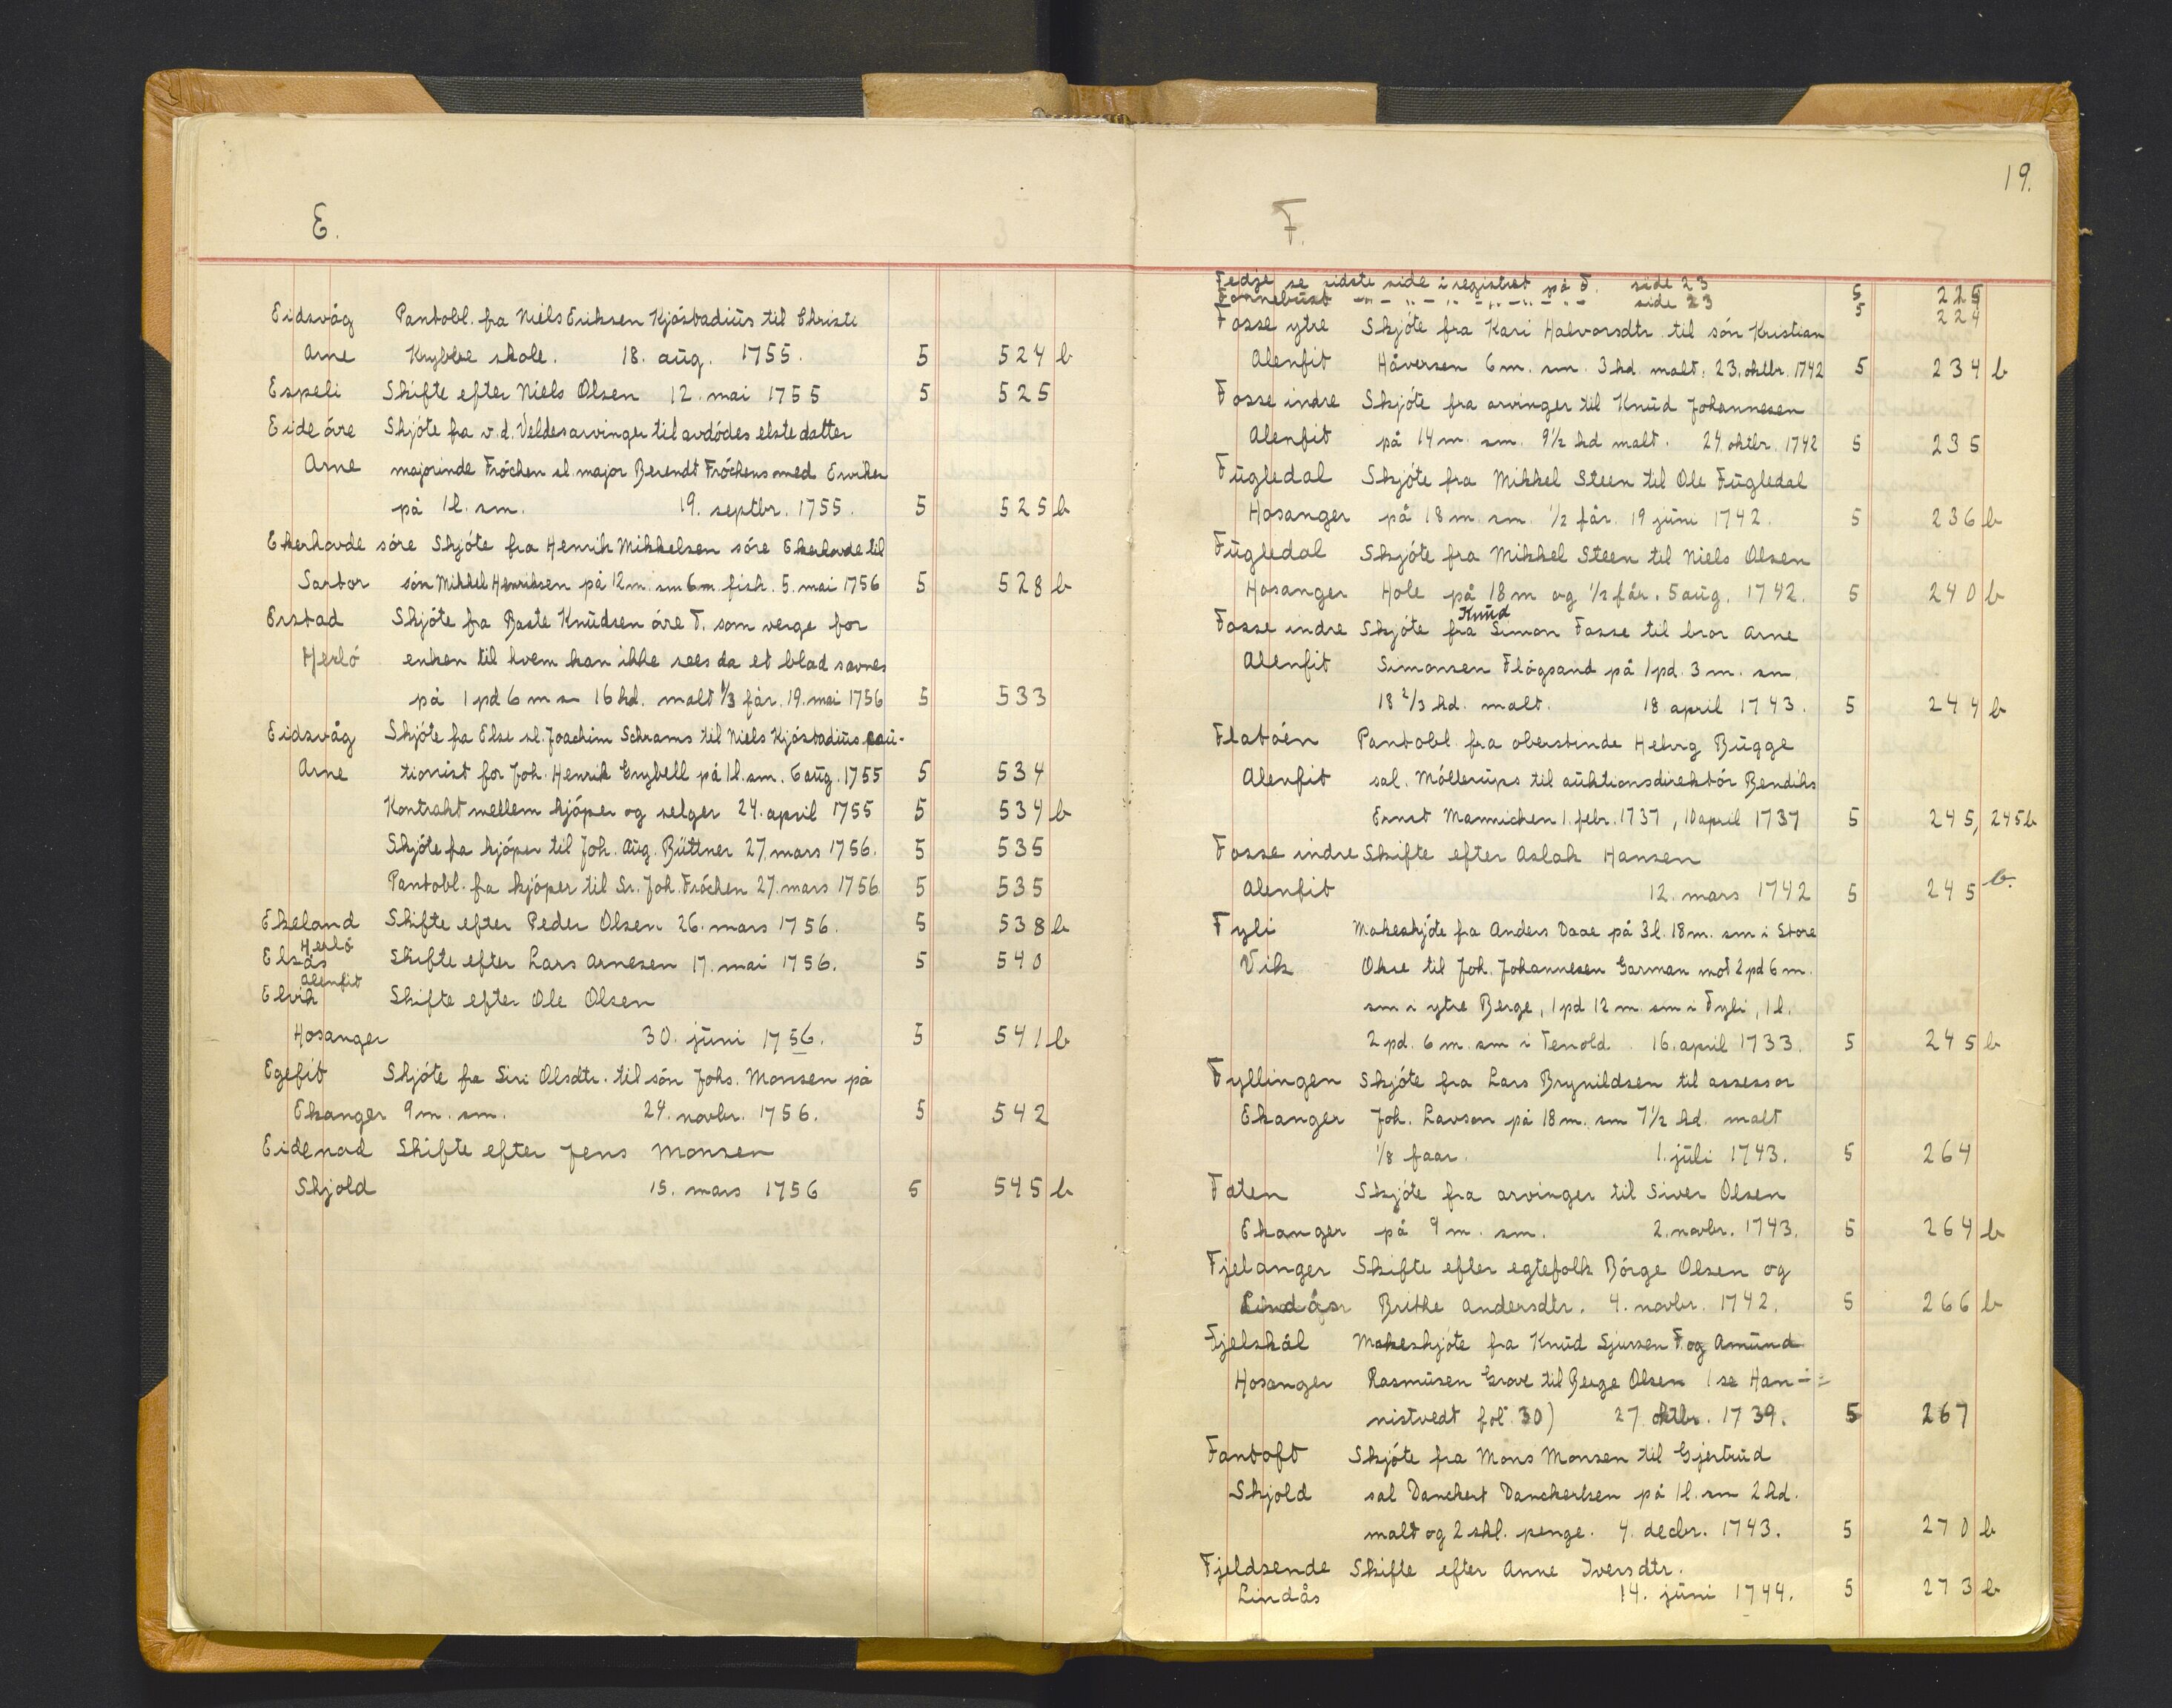 E.
Eidsvåg Pantobl. fra Niels Eriksen Kjöstadiüs til Christi
Arne Krybbe skole. 18. aüg. 1755. 5 524 b
Espeli Skifte efter Niels Olsen 12. mai 1755 5 525
Eide övre Skjöte fra v.d. Veldes arvinger til avdödes elste datter
Arne majorinde Fröchen sl. major Berendt Fröchens med Erviken
på 1 l. sm. 19. septbr. 1755. 5 525 b
Ekerhovde söre Skjöte fra Henrik Mikkelsen söre Ekerhovde til
Sartor sön Mikkel Henriksen på 12 m. sm 6 m. fisk. 5. mai 1756 5 528 b
Erstad Skjöte fra Baste Knüdsen övre T. som verge for
Herlö enken til hvem kan ikke sees da et blad savnes
på 1 pd 6 m sm 16 hd. malt 1/3 får. 19. mai 1756 5 533
Eidsvåg Skjöte fra Else sl. Joachim Schrams til Niels Kjöstadiüs caü-
Arne tionist for Joh. Henrik Grybell på 1 l. sm. 6 aüg. 1755 5 534
Kontrakt mellem kjöper og selger 24. april 1755 5 534 b
Skjöte fra kjöper til Joh. Aüg. Büttner 27. mars 1756. 5 535
Pantobl. fra kjöper til Sr. Joh. Fröchen 27. mars 1756 5 535
Ekeland Skifte efter Peder Olsen 26. mars 1756. 5 538 b
Herlö
Elsås Skifte efter Lars Arnesen 17. mai 1756. 5 540
Alenfit
Elvik Skifte efter Ole Olsen
Hosanger 30. jüni 1756. 5 541 b
Egefit Skjöte fra Siri Olsdtr. til sön Johs. Monsen på
Ekanger 9 m. sm. 24. novbr. 1756. 5 542
Eidenod Skifte efter Jens Monsen
Skjold 15. mars 1756 5 545 b
19.
F.
Fedje se sidste side i registret på F. side 23 5 225
Fonnebüst " - " - " - " - " - side 23 5 224
Fosse ytre Skjöte fra Kari Halvorsdtr. til sön Kristian
Alenfit Håversen 6 m. sm. 3 hd. malt. 23. oktbr. 1742 5 234 b
Fosse indre Skjöte fra arvinger til Knüd Johannesen
Alenfit på 14 m. sm. 9 1/2 hd malt. 24. oktbr. 1742 5 235
Fügledal Skjöte fra Mikkel Steen til Ole Fügledal
Hosanger på 18 m. sm. 1/2 får. 19 jüni 1742. 5 236 b
Fügledal Skjöte fra Mikkel Steen til Niels Olsen
Hosanger Hole på 18 m og 1/2 får. 5 aüg. 1742. 5 240 b
Knüd
Fosse indre Skjöte fra Simon Fosse til bror Arne
Alenfit Simonsen Flögsand på 1 pd. 3 m. sm.
18 2/3 hd. malt. 18. april 1743. 5 244 b
Flatöen Pantobl. fra oberstinde Helvig Bügge
Alenfit sal. Möllerüps til aüktionsdirektör Bendiks
Ernst Mannichen 1. febr. 1737, 10 april 1737 5 245, 245 b
Fosse indre Skifte efter Aslak Hansen
Alenfit 12. mars 1742 5 245 b.
Fyli Makeskjöte fra Anders Daae på 3 l. 18 m. sm i Store
Vik Okse til Joh. Johannesen Garman mot 2 pd 6 m.
sm i ytre Berge, 1 pd 12 m. sm i Fyli, 1 l.
2 pd. 6 m. sm i Tenold. 16. april 1733. 5 245 b
Fyllingen Skjöte fra Lars Brynildsen til assessor
Ekanger Joh. Lavson på 18 m. sm 7 1/2 hd. malt
1/8 faar. 1. jüli 1743. 5 264
Fæten Skjöte fra arvinger til Siver Olsen
Ekanger på 9 m. sm. 2. novbr. 1743. 5 264 b
Fjelanger Skifte efter egtefolk Börge Olsen og
Lindåser Brithe Andersdtr. 4. novbr. 1742. 5 266 b
Fjelskål Makeskjöte fra Knüd Sjursen F. og Amünd
Hosanger Rasmüsen Grove til Berge Olsen (se Han-
nistvedt fol. 30) 27 oktbr. 1739. 5 267
Fantoft Skjöte fra Mons Monsen til Gjertrüd
Skjold sal Danckert Danckertsen på 1 l. sm 2 hd.
malt og 2 skl. penge. 4. decbr. 1743. 5 270 b
Fjeldsende Skifte efter Anne Iversdtr.
Lindås 14. jüni 1744. 5 273 b